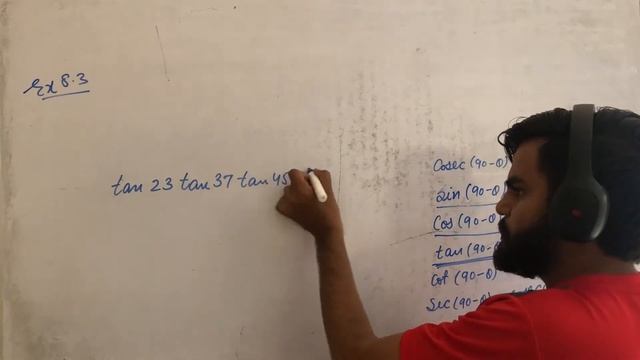 Ex 8.3
tan 23 tan 37 tan 45
Cosec (90-θ)
Sin (90-θ)
Cos (90-θ)
tan (90-θ)
Cot (90-θ)
Sec (90-θ)